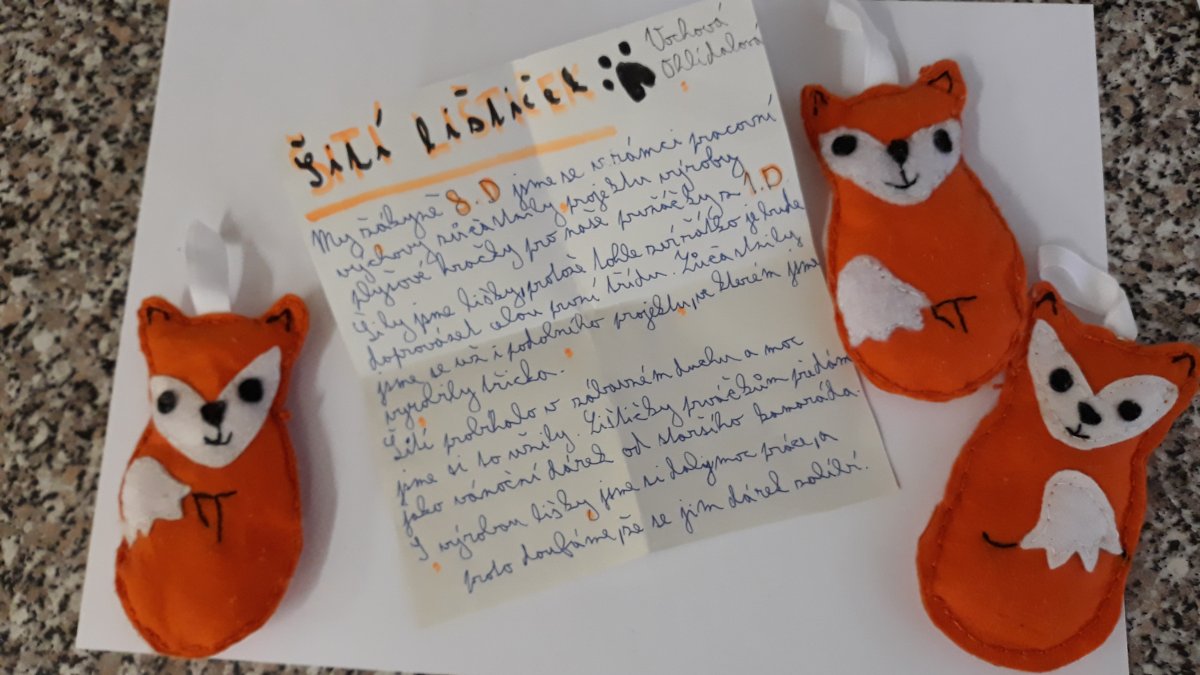 Šití lištiček
Vochová
Ohlídalová
My žákyně 8.D jsme se v rámci pracovní
výchovy zúčastnily projektu výroby
plyšové hračky pro naše prvňáčky z 1.D
Šily jsme lišky, protože tohle zvířátko je bude
doprovázet celou první třídu. Zúčastnily
jsme se už i podobního projektu, ve kterém jsme
vyrobily trička.
Šití probíhalo v zábavném duchu a moc
jsme si to užily. Lištičky prváčkům předám
jako vánoční dárek od staršího kamaráda.
S výrobou lišky jsme si daly moc práce, a
proto doufáme, že se jim dárek zalíbí.